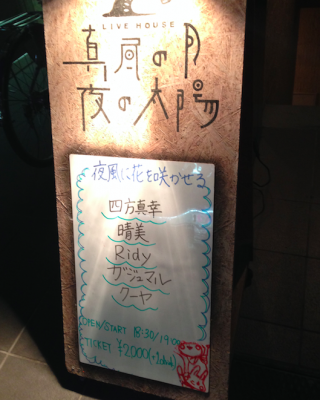 LIVE HOUSE
真昼の月
夜の太陽
夜風に花を咲かせろ
四方真幸
晴美
Ridy
ガジュマル
クーヤ
OPEN/START 18:30/19:00
TICKET ¥2,000(+1drink)